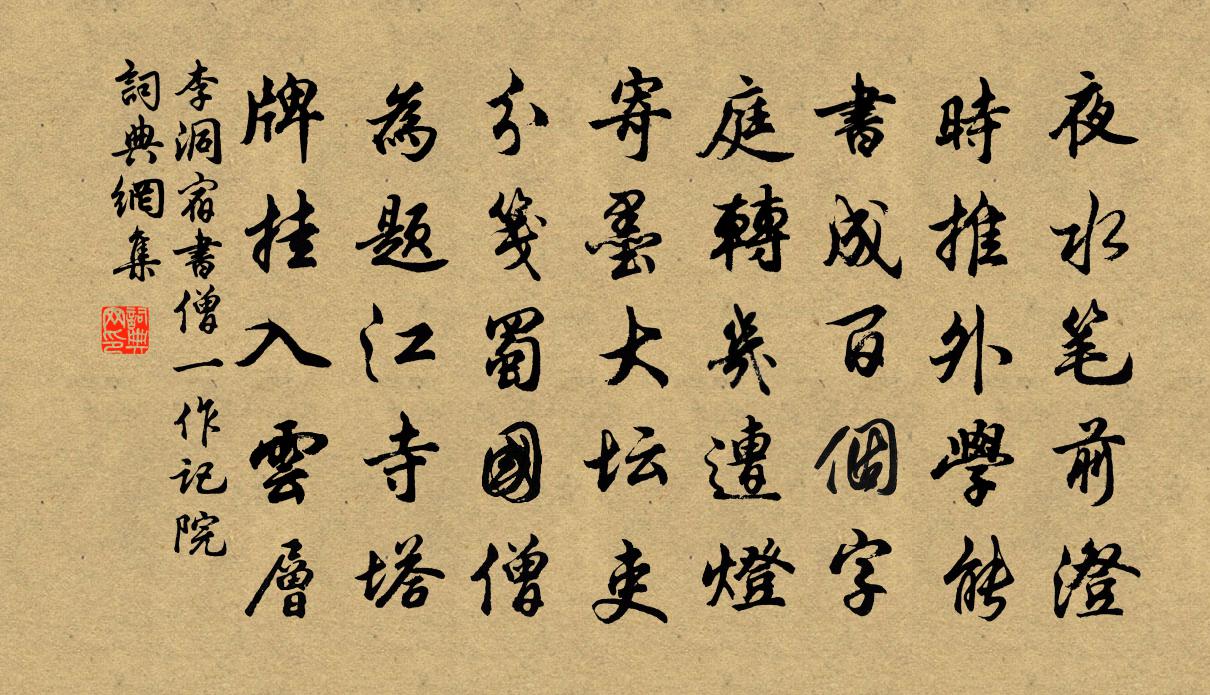 夜水笔前澄
時推外學能
書成百個字
庭轉幾遭燈
寄墨大坛吏
分箋蜀國僧
為题江寺塔
牌挂入雲層
李洞宿書僧一作記院
詞典網集
詞典网印